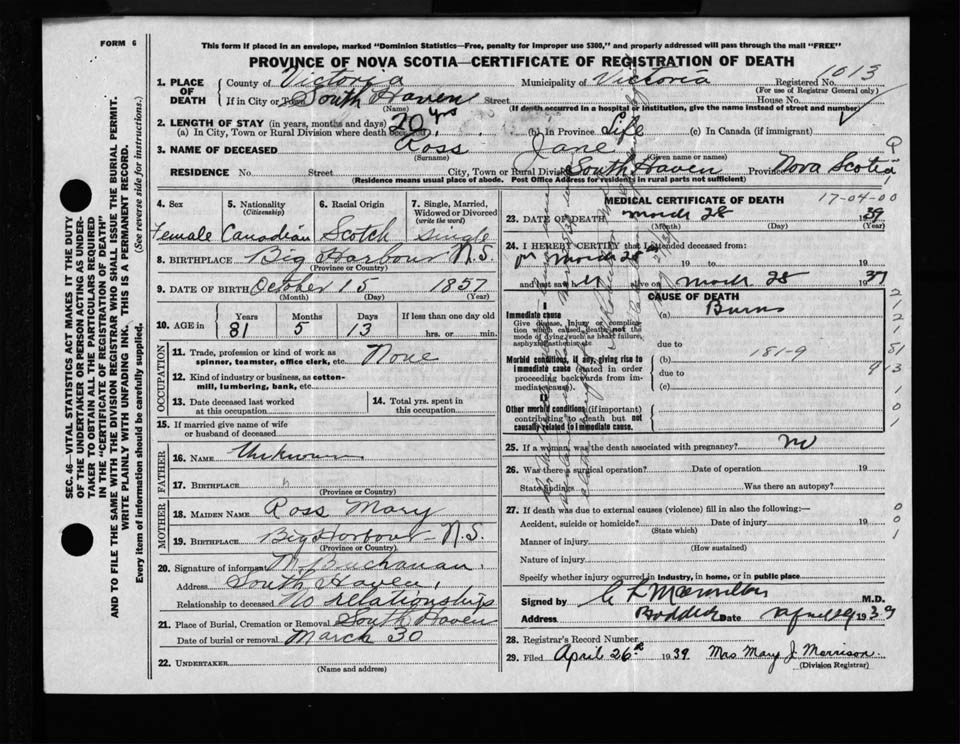 FORM 6
This form if placed in an envelope, marked "Dominion Statistics—Free, penalty for improper use $300," and properly addressed will pass through the mail "FREE"
PROVINCE OF NOVA SCOTIA—CERTIFICATE OF REGISTRATION OF DEATH
1. PLACE OF DEATH
County of Victoria Municipality of Victoria Registered No. 1013
(For use of Registrar General only)
If in City or Town South Haven Street House No.
(Name) (If death occurred in a hospital or institution, give the name instead of street and number)
2. LENGTH OF STAY (in years, months and days)
(a) In City, Town or Rural Division where death occurred 20 yrs (b) In Province Life (c) In Canada (if immigrant)
3. NAME OF DECEASED Ross Jane
(Surname) (Given name or names)
RESIDENCE No. Street City, Town or Rural Division South Haven Province Nova Scotia
(Residence means usual place of abode. Post Office Address for residents in rural parts not sufficient)
4. Sex 5. Nationality (Citizenship) 6. Racial Origin 7. Single, Married, Widowed or Divorced (write the word)
Female Canadian Scotch Single
8. BIRTHPLACE Big Harbour N.S.
(Province or Country)
9. DATE OF BIRTH October 15 1857
(Month) (Day) (Year)
10. AGE in Years Months Days If less than one day old
81 5 13 hrs. or min.
OCCUPATION
11. Trade, profession or kind of work as spinner, teamster, office clerk, etc. None
12. Kind of industry or business, as cotton-mill, lumbering, bank, etc.
13. Date deceased last worked at this occupation
14. Total yrs. spent in this occupation
15. If married give name of wife or husband of deceased
FATHER
16. NAME Unknown
17. BIRTHPLACE
(Province or Country)
MOTHER
18. MAIDEN NAME Ross Mary
19. BIRTHPLACE Big Harbour - N.S.
(Province or Country)
20. Signature of informant M. Buchanan
Address South Haven
Relationship to deceased No relationships
21. Place of Burial, Cremation or Removal South Haven
Date of burial or removal March 30
22. UNDERTAKER
(Name and address)
MEDICAL CERTIFICATE OF DEATH 17-04-00
23. DATE OF DEATH March 28 1939
(Month) (Day) (Year)
24. I HEREBY CERTIFY that I attended deceased from:
on March 28 19 to 19
and last saw h alive on March 28 1939
CAUSE OF DEATH
Immediate cause (a) Burns
Give disease, injury or complication which caused death, not the mode of dying, such as heart failure, asphyxia, asthenia, etc.
due to
Morbid conditions, if any, giving rise to immediate cause (stated in order proceeding backwards from immediate cause).
(b) 181-9
due to
(c)
Other morbid conditions (if important) contributing to death but not causally related to immediate cause.
25. If a woman, was the death associated with pregnancy? No
26. Was there a surgical operation? Date of operation 19
State findings Was there an autopsy?
27. If death was due to external causes (violence) fill in also the following:—
Accident, suicide or homicide? Date of injury 19
(State which)
Manner of injury
(How sustained)
Nature of injury
Specify whether injury occurred in industry, in home, or in public place
Signed by M.D.
Address Baddeck Date 1939
28. Registrar's Record Number
29. Filed April 26th 1939 Mrs Mary J. Morrison
(Division Registrar)
SEC. 46—VITAL STATISTICS ACT MAKES IT THE DUTY
OF THE UNDERTAKER OR PERSON ACTING AS UNDERTAKER
TO OBTAIN ALL THE PARTICULARS REQUIRED
IN THE "CERTIFICATE OF REGISTRATION OF DEATH"
AND TO FILE THE SAME WITH THE DIVISION REGISTRAR WHO SHALL ISSUE THE BURIAL PERMIT.
WRITE PLAINLY WITH UNFADING INK. THIS IS A PERMANENT RECORD.
Every item of information should be carefully supplied. (See reverse side for instructions.)